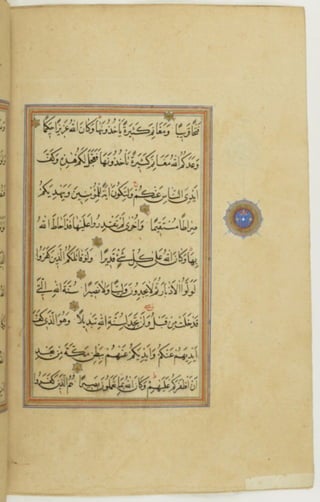 فَتْحًا قَرِيبًا وَمَغَانِمَ كَثِيرَةً يَأْخُذُونَهَا وَكَانَ اللَّهُ عَزِيزًا حَكِيمًا
وَعَدَكُمُ اللَّهُ مَغَانِمَ كَثِيرَةً تَأْخُذُونَهَا فَعَجَّلَ لَكُمْ هَٰذِهِ وَكَفَّ
أَيْدِيَ النَّاسِ عَنْكُمْ وَلِتَكُونَ آيَةً لِلْمُؤْمِنِينَ وَيَهْدِيَكُمْ
صِرَاطًا مُسْتَقِيمًا وَأُخْرَىٰ لَمْ تَقْدِرُوا عَلَيْهَا قَدْ أَحَاطَ اللَّهُ
بِهَا وَكَانَ اللَّهُ عَلَىٰ كُلِّ شَيْءٍ قَدِيرًا وَلَوْ قَاتَلَكُمُ الَّذِينَ كَفَرُوا
لَوَلَّوُا الْأَدْبَارَ ثُمَّ لَا يَجِدُونَ وَلِيًّا وَلَا نَصِيرًا سُنَّةَ اللَّهِ الَّتِي
قَدْ خَلَتْ مِنْ قَبْلُ وَلَنْ تَجِدَ لِسُنَّةِ اللَّهِ تَبْدِيلًا وَهُوَ الَّذِي كَفَّ
أَيْدِيَهُمْ عَنْكُمْ وَأَيْدِيَكُمْ عَنْهُمْ بِبَطْنِ مَكَّةَ مِنْ بَعْدِ
أَنْ أَظْفَرَكُمْ عَلَيْهِمْ وَكَانَ اللَّهُ بِمَا تَعْمَلُونَ بَصِيرًا هُمُ الَّذِينَ كَفَرُوا